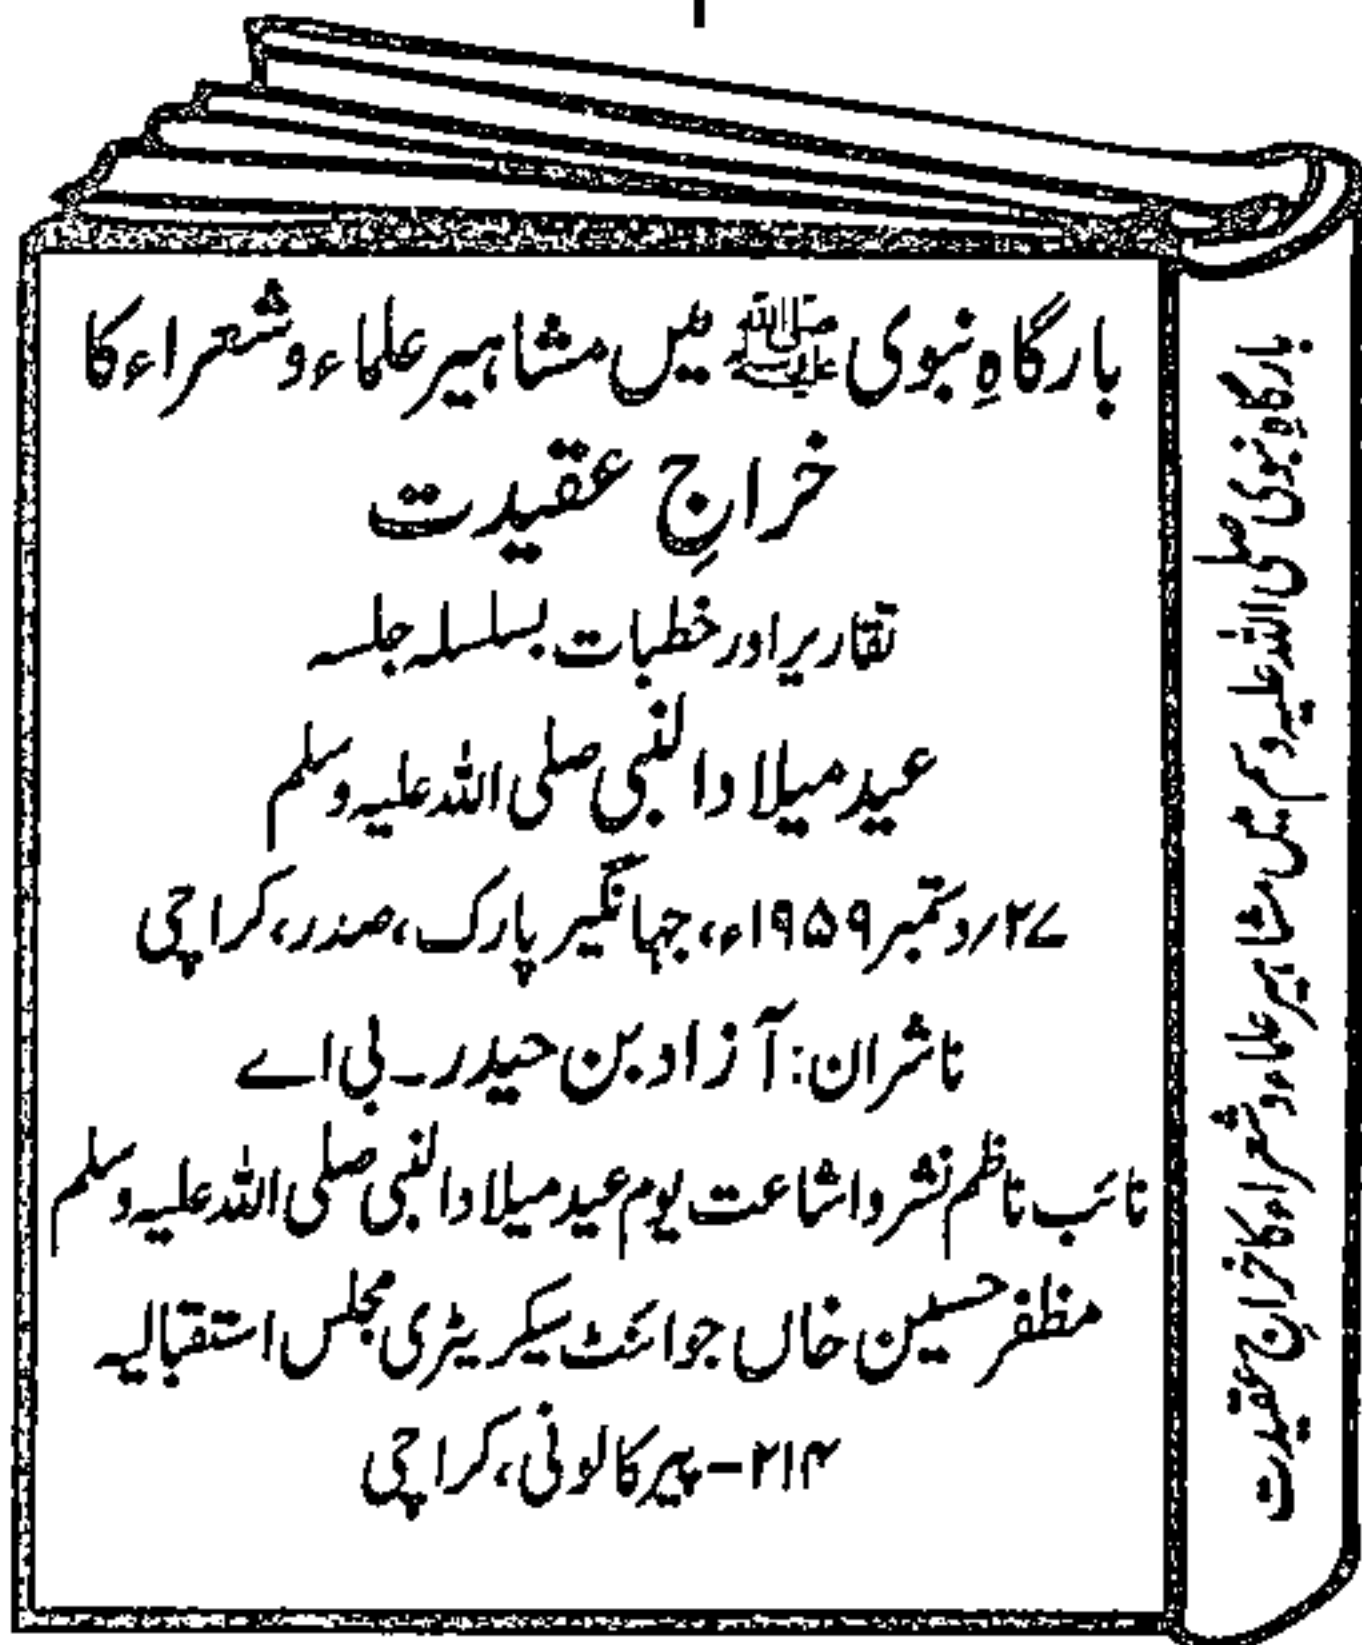 بارگاہِ نبوی ﷺ میں مشاہیر علماء و شعراء کا
خراجِ عقیدت
تقاریر اور خطبات بسلسلہ جلسہ
عید میلاد النبی صلی اللہ علیہ وسلم
۲۷؍دتمبر ۱۹۵۹ء، جہانگیر پارک، صدر، کراچی
ناشران: آزاد بن حیدر۔ بی اے
نائب ناظم نشر و اشاعت یوم عید میلاد النبی صلی اللہ علیہ وسلم
مظفر حسین خاں جوائنٹ سیکریٹری مجلس استقبالیہ
۲۱۴- پیر کالونی، کراچی
بارگاہِ نبوی صلی اللہ علیہ وسلم میں مشاہیر علماء و شعراء کا خراجِ عقیدت